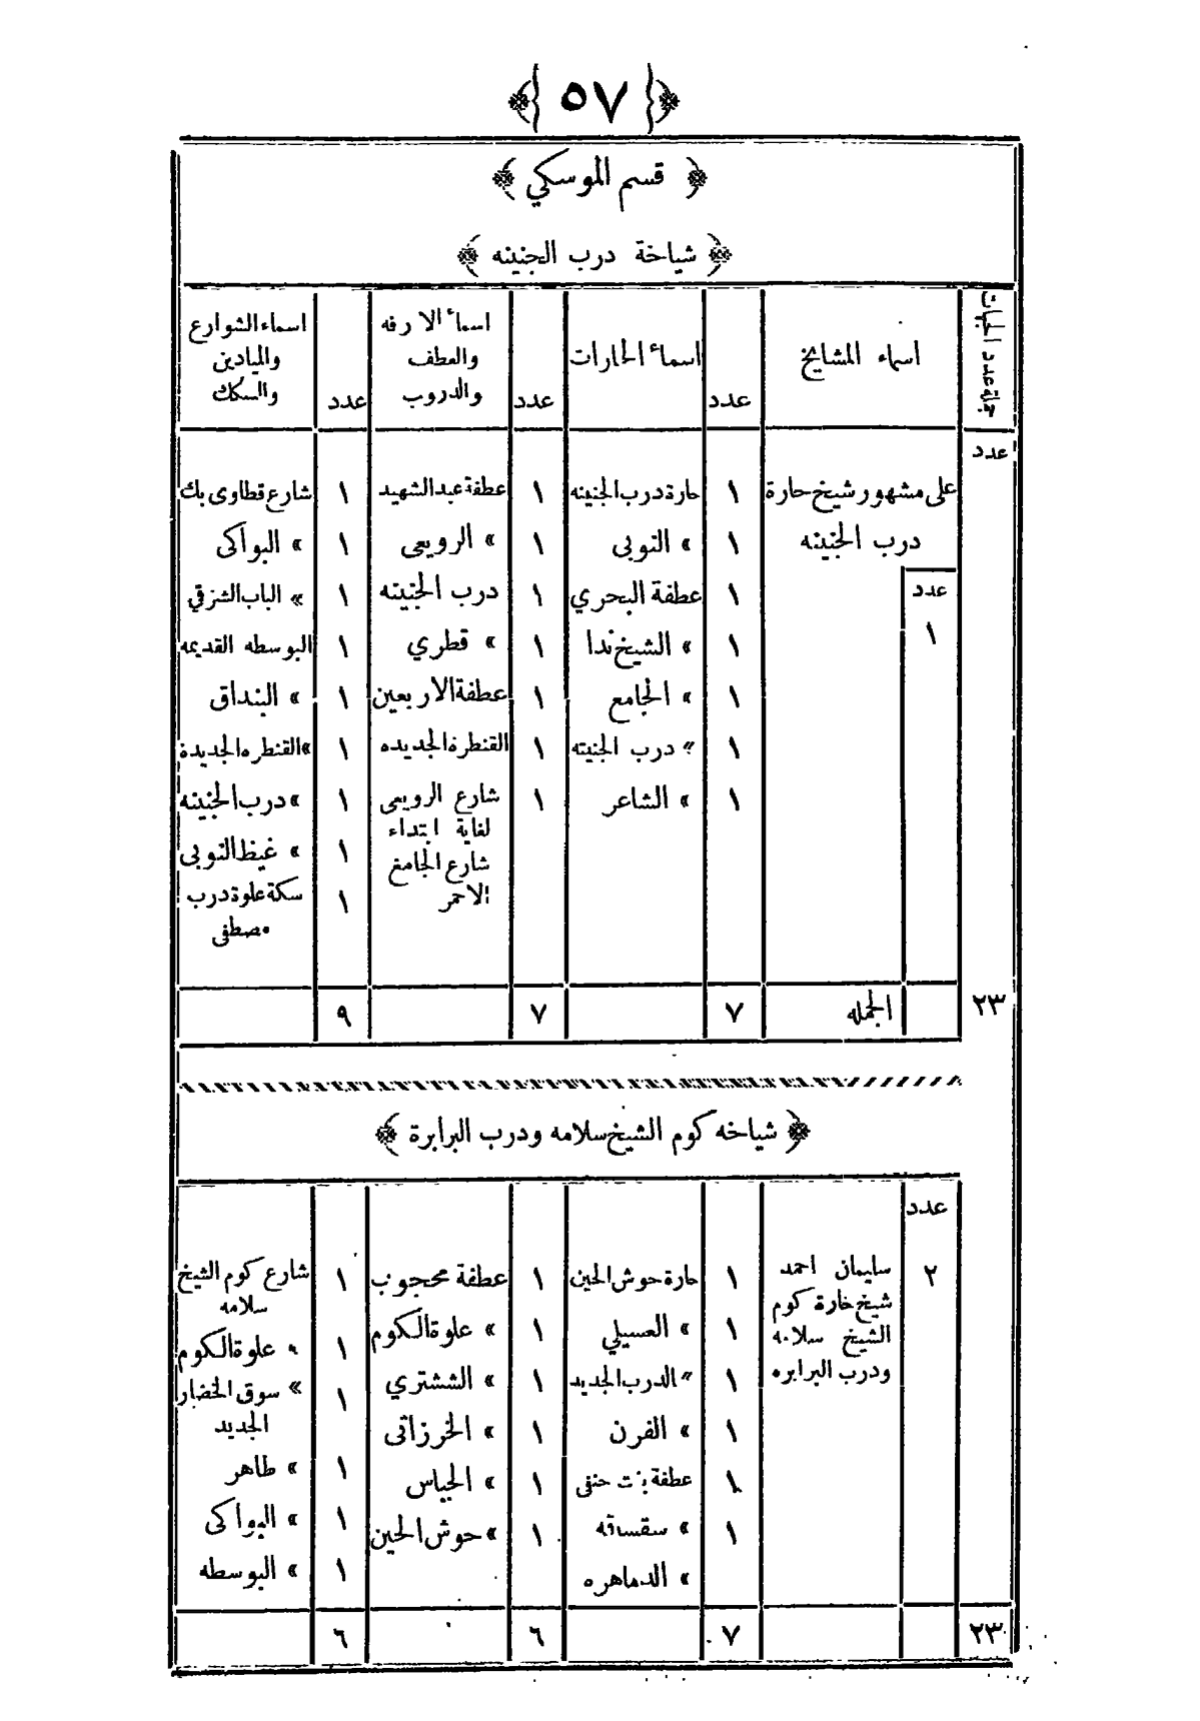 ٥٧
قسم الموسكي
شياخة درب الجنينه
جملة عدد الجهات
اسماء المشايخ
عدد
اسماء الحارات
عدد
اسماء الازقه
والعطف
والدروب
عدد
اسماء الشوارع
والميادين
والسكك
عدد
على مشهور شيخ حارة
١ حارة درب الجنينه
١ عطفة عبد الشهيد
١ شارع قطاوى بك
درب الجنينه
١ » النوبى
١ » الرويعى
١ » البواكى
عدد
١ عطفة البحري
١ درب الجنينه
١ » الباب الشرقي
١
١ » الشيخ ندا
١ » قطري
١ البوسطه القديمه
١ » الجامع
١ عطفة الاربعين
١ » البنداق
١ » درب الجنينه
١ القنطرة الجديده
١ » القنطره الجديدة
١ » الشاعر
١ شارع الرويعى
لغاية ابتداء
شارع الجامع
الاحمر
١ » درب الجنينه
١ » غيط النوبى
١ سكة علوة درب
مصطفى
٢٣
الجمله
٧
٧
٩
شياخه كوم الشيخ سلامه ودرب البرابرة
عدد
٢
سليمان احمد
شيخ حارة كوم
الشيخ سلامه
ودرب البرابره
١ حارة حوش الحين
١ عطفة محجوب
١ شارع كوم الشيخ
سلامه
١ » العسيلي
١ » علوة الكوم
١ » علوة الكوم
١ » الدرب الجديد
١ » الششتري
١ » سوق الخضار
الجديد
١ » الفرن
١ » الخرزاتى
١ » طاهر
١ عطفة بنت حنفى
١ » الجباس
١ » البواكى
١ » سقساقه
١ » حوش الحين
١ » البوسطه
» الدماهره
٢٣
٧
٦
٦